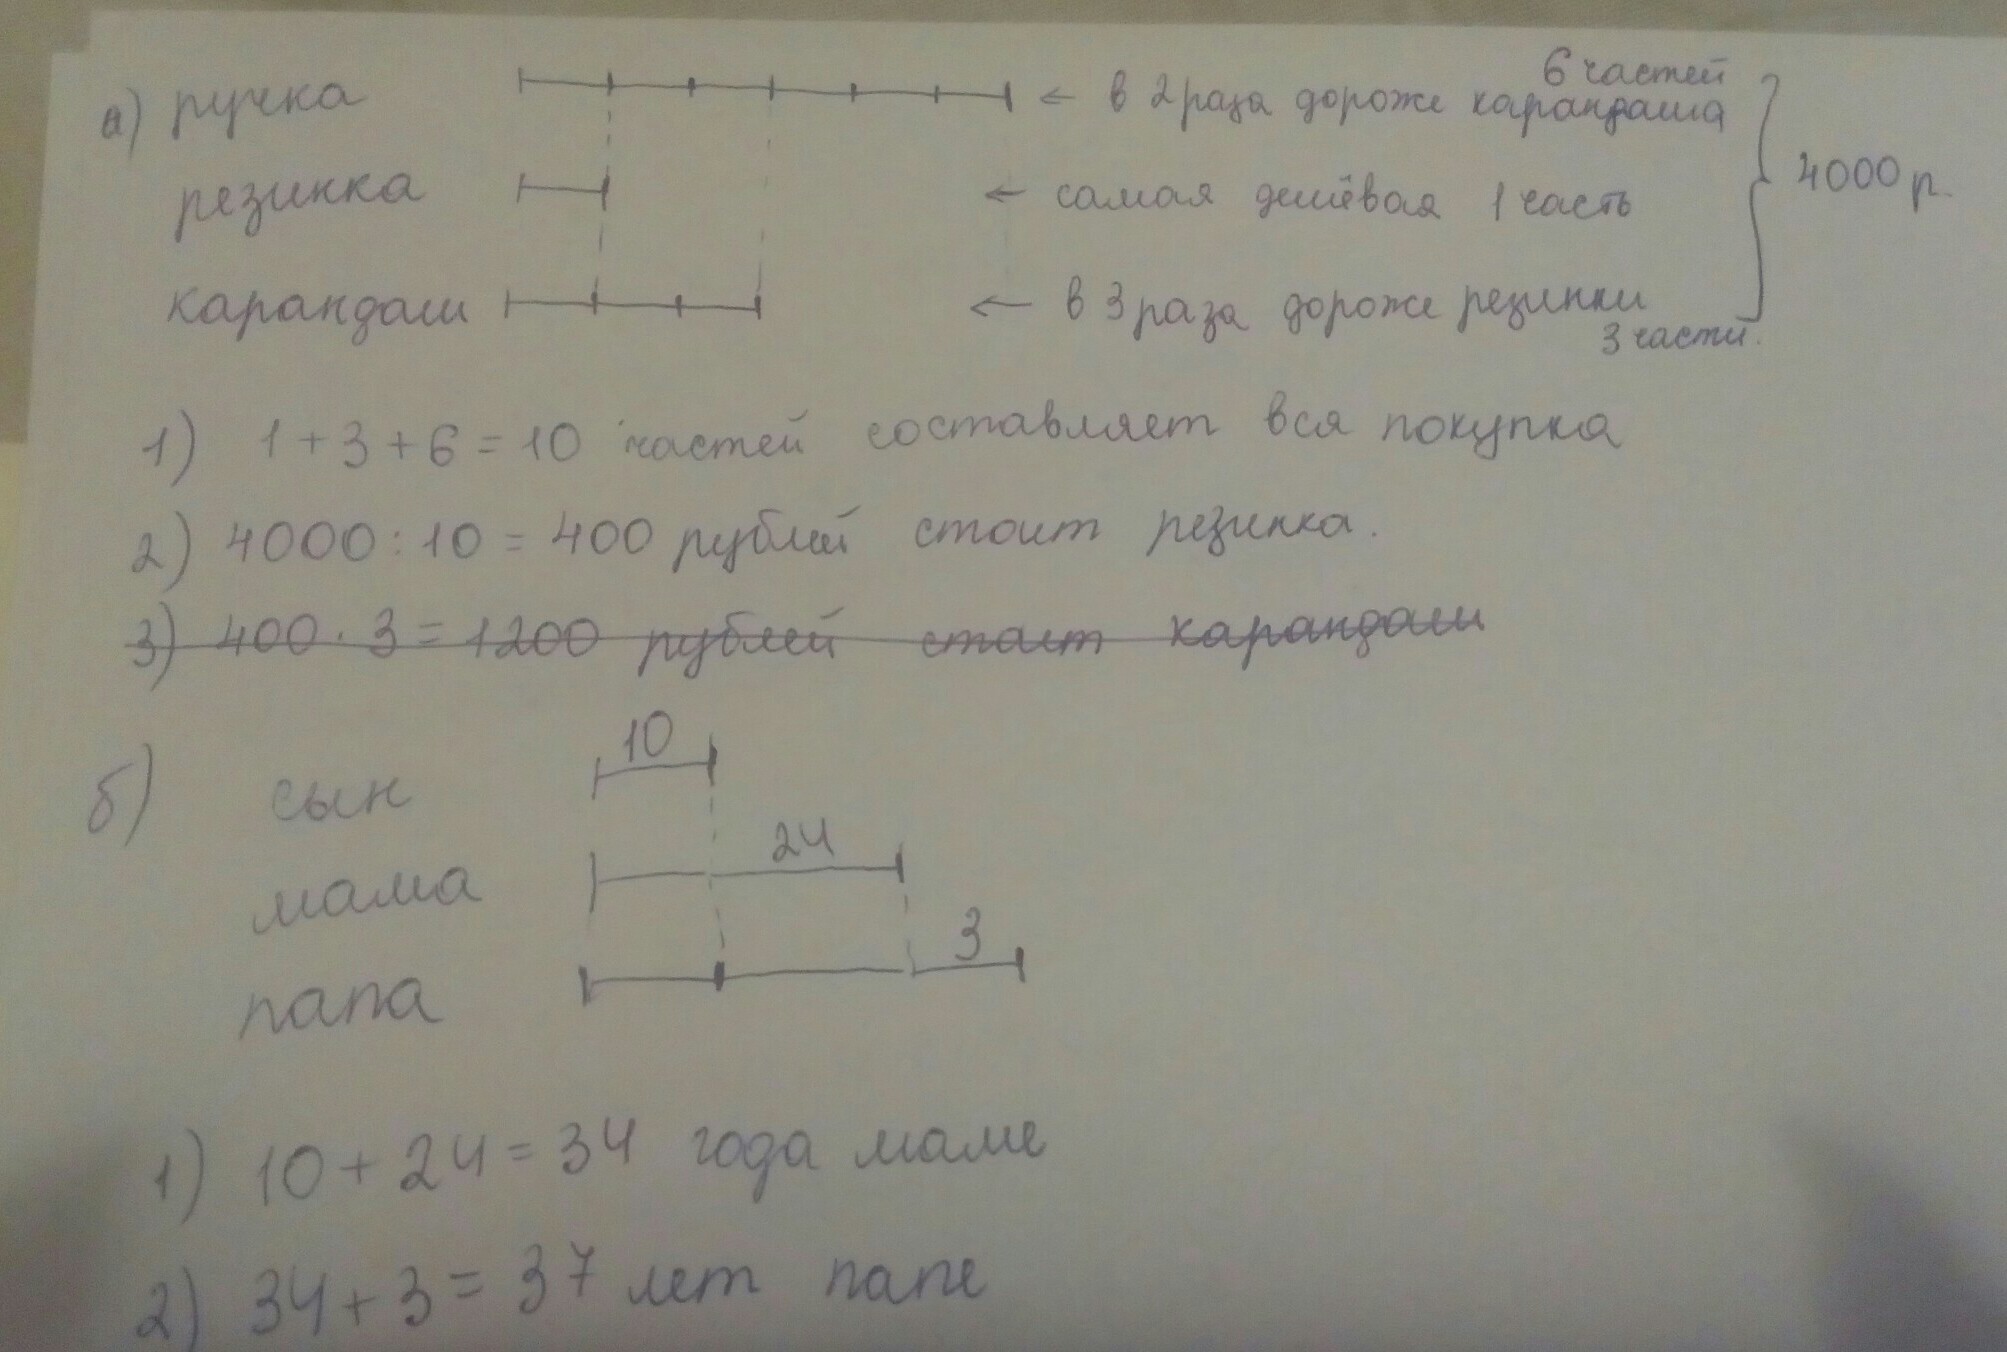 6 частей
а) ручка ← в 2 раза дороже карандаша
4000 р.
резинка ← самая дешёвая 1 часть
карандаш ← в 3 раза дороже резинки
3 части.
1) 1 + 3 + 6 = 10 частей составляет вся покупка
2) 4000 : 10 = 400 рублей стоит резинка.
3) 400 · 3 = 1200 рублей стоит карандаш
10
б) сын
24
мама
3
папа
1) 10 + 24 = 34 года маме
2) 34 + 3 = 37 лет папе